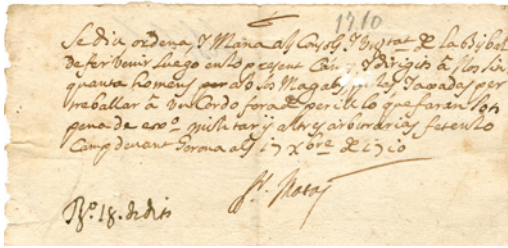 1710
Se diu ordena, y Mana als Consols y Unitat de la Bisbal
de fer venir luego en lo present Camp y dirigits à
quanta homens per ab sos Magalls, y Taxadas per
treballar à un Cordo fora lo que faran sots
pena de exo militar y altres arbitrarias fet en lo
Camp devant Gerona als 17 xbre de 1710
Ro 18. dt dits